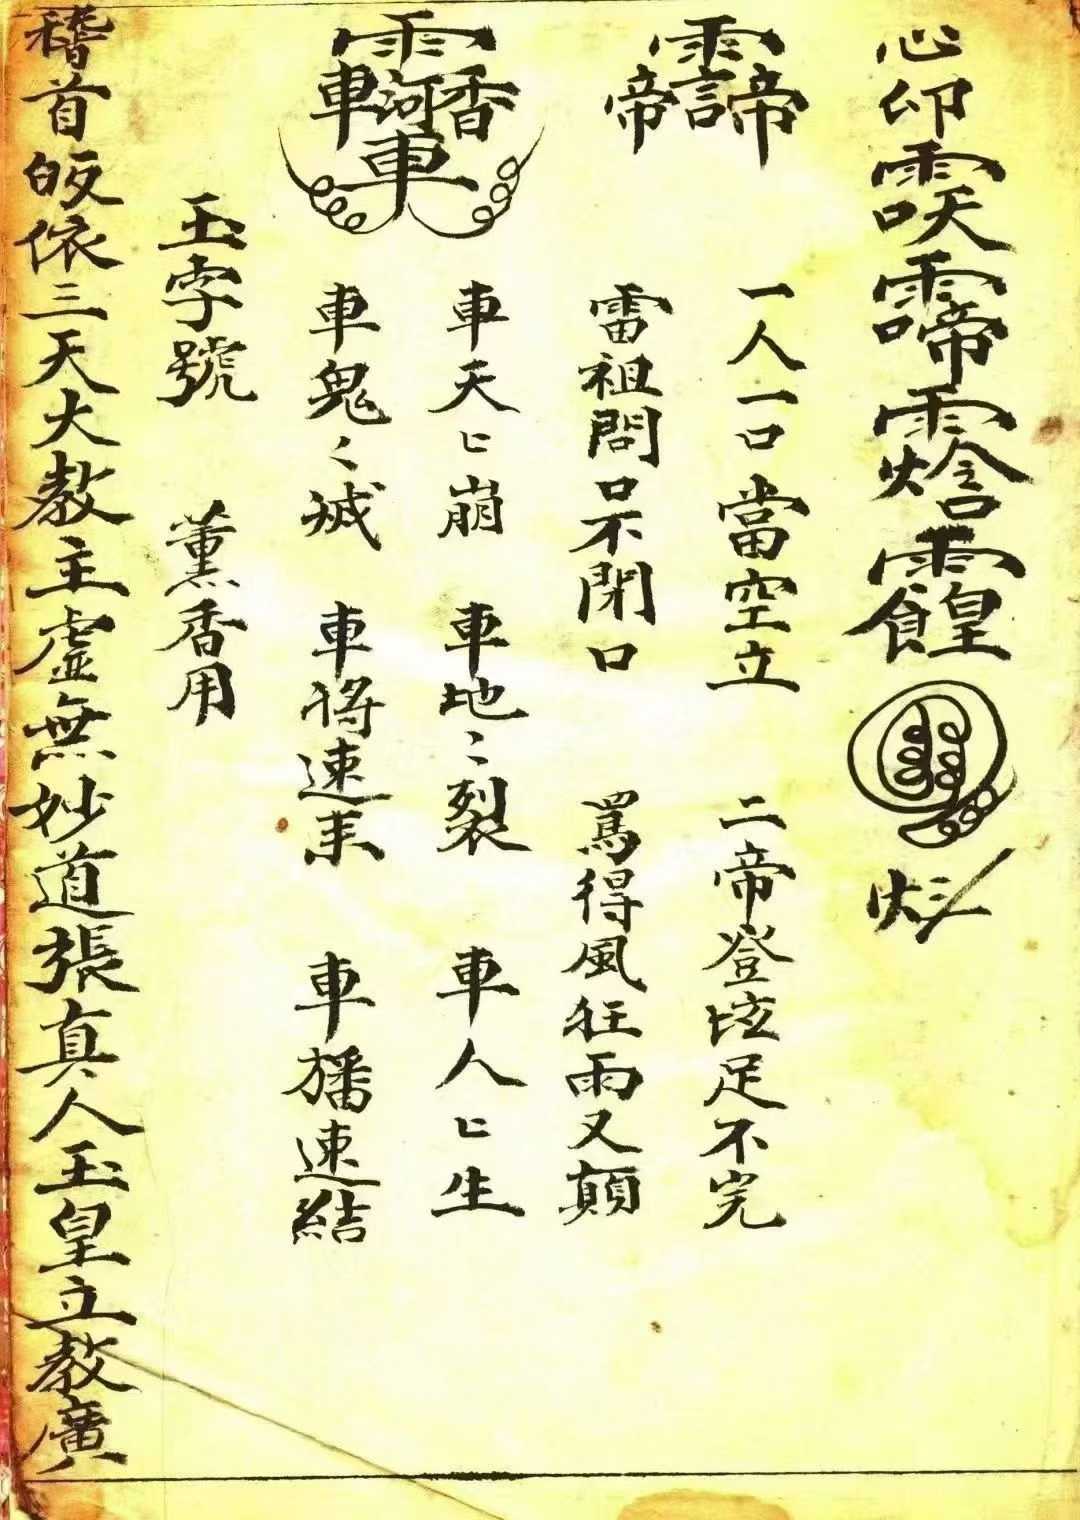 心印
一人一口當空立 二帝登坛足不完
雷祖問口不閉口 罵得風狂雨又顛
車天匕崩 車地〻裂 車人匕生
車鬼〻滅 車將速来 車旛速結
玉字號 薰香用
稽首皈依三天大教主虛無妙道張真人玉皇立教廣